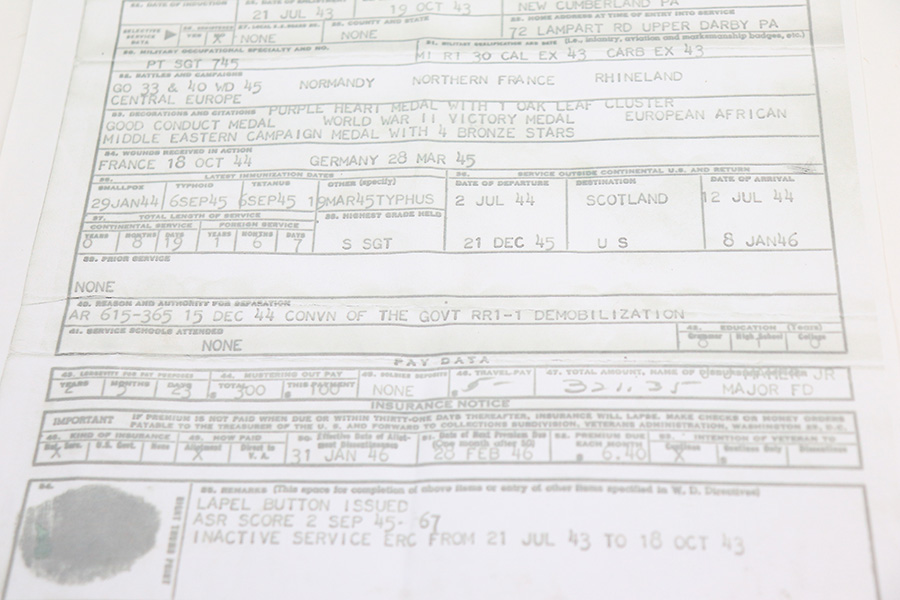 21 JUL 43
19 OCT 43
NEW CUMBERLAND PA
SELECTIVE SERVICE DATA
X
NONE
COUNTY AND STATE
NONE
HOME ADDRESS AT TIME OF ENTRY INTO SERVICE
72 LAMPART RD UPPER DARBY PA
30. MILITARY OCCUPATIONAL SPECIALTY AND NO.
PT SGT 745
31. MILITARY QUALIFICATION AND DATE (i.e., infantry, aviation and marksmanship badges, etc.)
M1 R1 30 CAL EX 43 CARB EX 43
32. BATTLES AND CAMPAIGNS
GO 33 & 40 WD 45 NORMANDY NORTHERN FRANCE RHINELAND
CENTRAL EUROPE
33. DECORATIONS AND CITATIONS PURPLE HEART MEDAL WITH 1 OAK LEAF CLUSTER
GOOD CONDUCT MEDAL WORLD WAR II VICTORY MEDAL EUROPEAN AFRICAN
MIDDLE EASTERN CAMPAIGN MEDAL WITH 4 BRONZE STARS
34. WOUNDS RECEIVED IN ACTION
FRANCE 18 OCT 44 GERMANY 28 MAR 45
35. LATEST IMMUNIZATION DATES
SMALLPOX TYPHOID TETANUS OTHER (specify)
29JAN44 6SEP45 6SEP45 19MAR45TYPHUS
36. SERVICE OUTSIDE CONTINENTAL U.S. AND RETURN
DATE OF DEPARTURE DESTINATION DATE OF ARRIVAL
2 JUL 44 SCOTLAND 12 JUL 44
21 DEC 45 U S 8 JAN46
37. TOTAL LENGTH OF SERVICE
CONTINENTAL SERVICE FOREIGN SERVICE
YEARS MONTHS DAYS YEARS MONTHS DAYS
0 8 19 1 6 7
38. HIGHEST GRADE HELD
S SGT
39. PRIOR SERVICE
NONE
40. REASON AND AUTHORITY FOR SEPARATION
AR 615-365 15 DEC 44 CONVN OF THE GOVT RR1-1 DEMOBILIZATION
41. SERVICE SCHOOLS ATTENDED
NONE
42. EDUCATION (Years)
Grammar High School College
PAY DATA
43. LONGEVITY FOR PAY PURPOSES
YEARS MONTHS DAYS
2 5 23
44. MUSTERING OUT PAY
TOTAL THIS PAYMENT
$ 300 $ 100
45. SOLDIER DEPOSITS
NONE
46. TRAVEL PAY
$ 5-
47. TOTAL AMOUNT, NAME OF
321.35
JR
MAJOR FD
INSURANCE NOTICE
IMPORTANT
IF PREMIUM IS NOT PAID WHEN DUE OR WITHIN THIRTY-ONE DAYS THEREAFTER, INSURANCE WILL LAPSE. MAKE CHECKS OR MONEY ORDERS
PAYABLE TO THE TREASURER OF THE U. S. AND FORWARD TO COLLECTIONS SUBDIVISION, VETERANS ADMINISTRATION, WASHINGTON 25, D.C.
48. KIND OF INSURANCE
Nat. Serv. U.S. Govt. None
X
49. HOW PAID
Allotment Direct to V. A.
X
50. Effective Date of Allotment Discontinuance
31 JAN 46
51. Date of Next Premium Due
(One month after 50)
28 FEB 46
52. PREMIUM DUE
EACH MONTH
$ 6.40
53. INTENTION OF VETERAN TO
X
54.
RIGHT THUMB PRINT
55. REMARKS (This space for completion of above items or entry of other items specified in W. D. Directives)
LAPEL BUTTON ISSUED
ASR SCORE 2 SEP 45- 67
INACTIVE SERVICE ERC FROM 21 JUL 43 TO 18 OCT 43